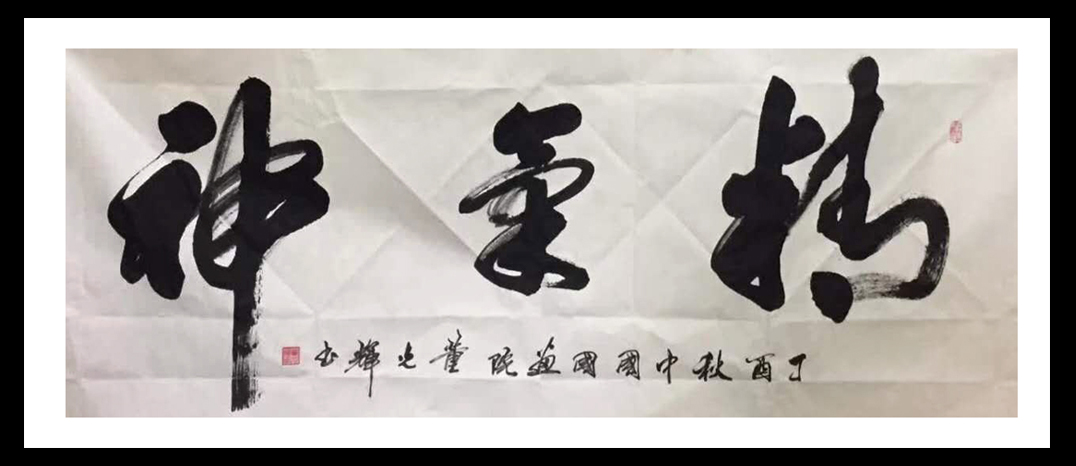 精氣神
丁酉秋中國國畫院董光輝書